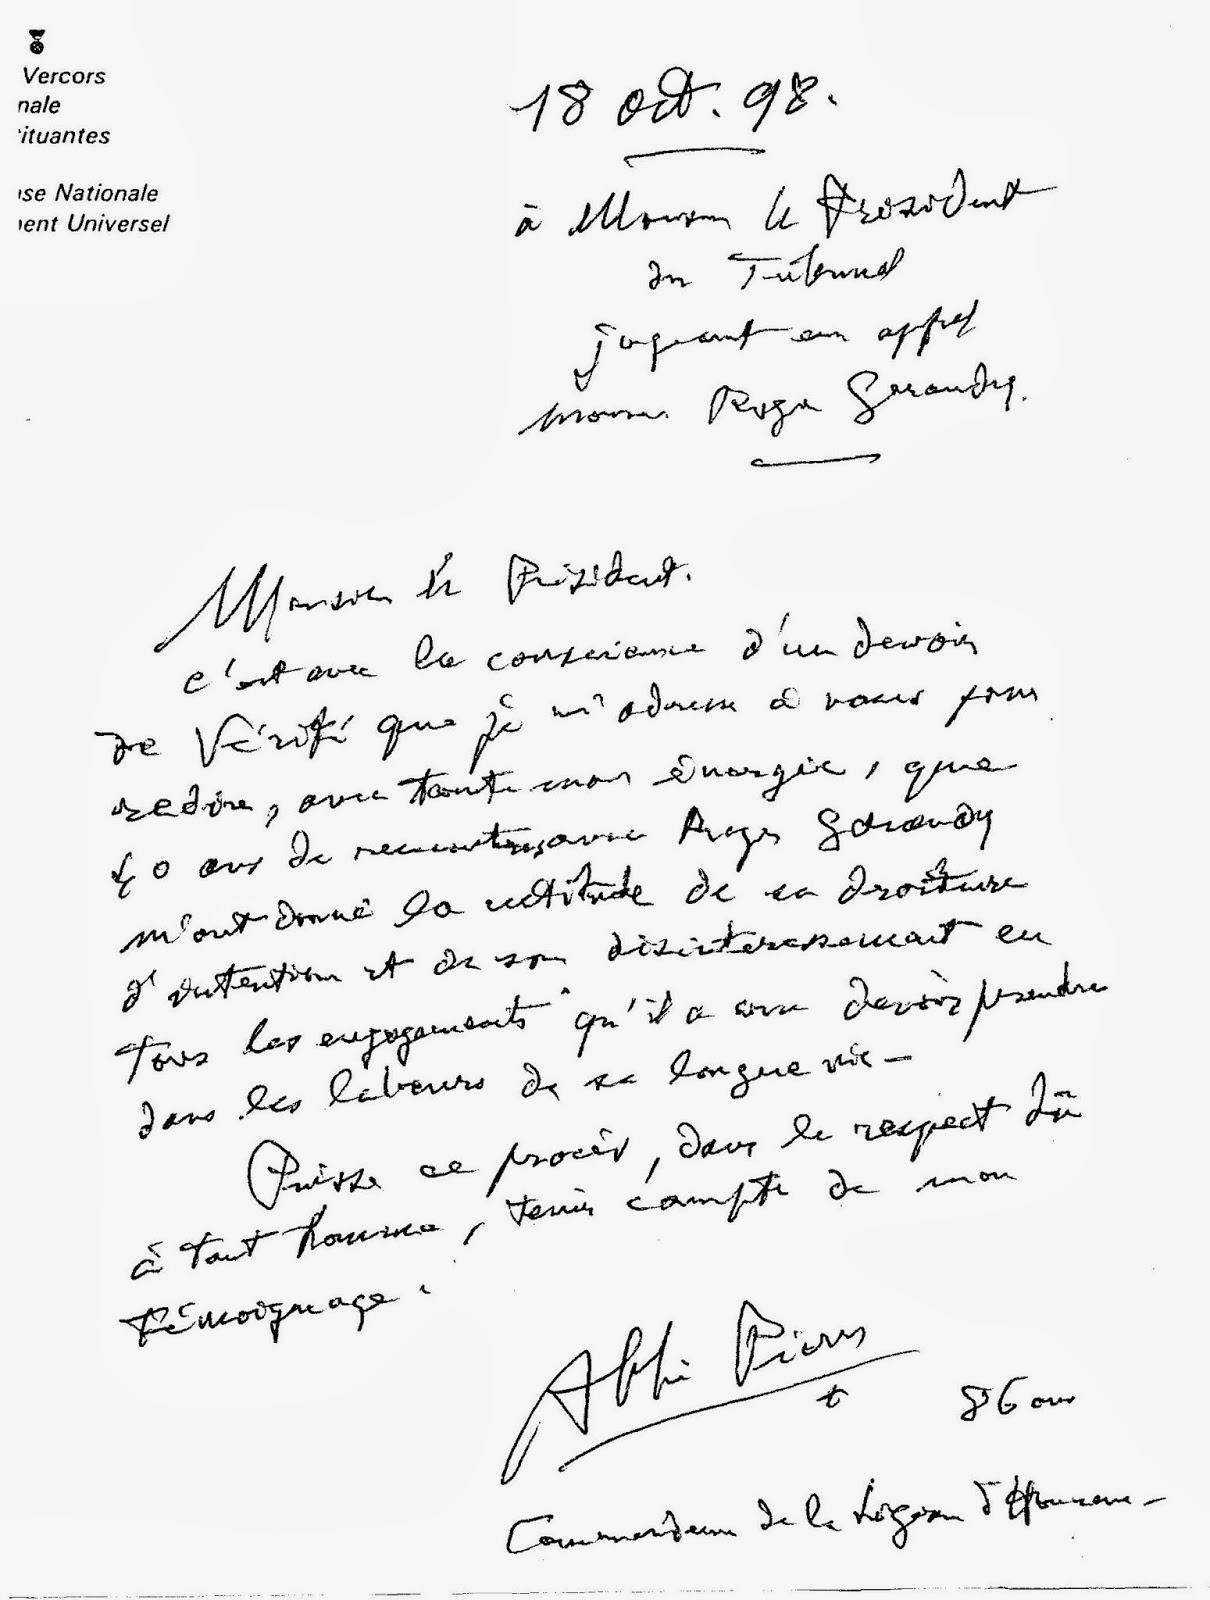 Vercors
nale
ituantes
se Nationale
ent Universel
18 oct. 98.
à Monsieur le Président
du Tribunal
jugeant en appel
Monsieur Roger Garaudy.
Monsieur le Président.
c'est avec la conscience d'un devoir
de Vérité que je m'adresse à vous pour
redire, avec toute mon énergie, que
50 ans de rencontres avec Roger Garaudy
m'ont donné la certitude de sa droiture
d'intention et de son désintéressement en
tous les engagements qu'il a cru devoir prendre
dans les labeurs de sa longue vie –
Puisse ce procès, dans le respect dû
à tout homme, tenir compte de mon
témoignage.
Abbé Pierre
86 ans
Commandeur de la Légion d'Honneur –